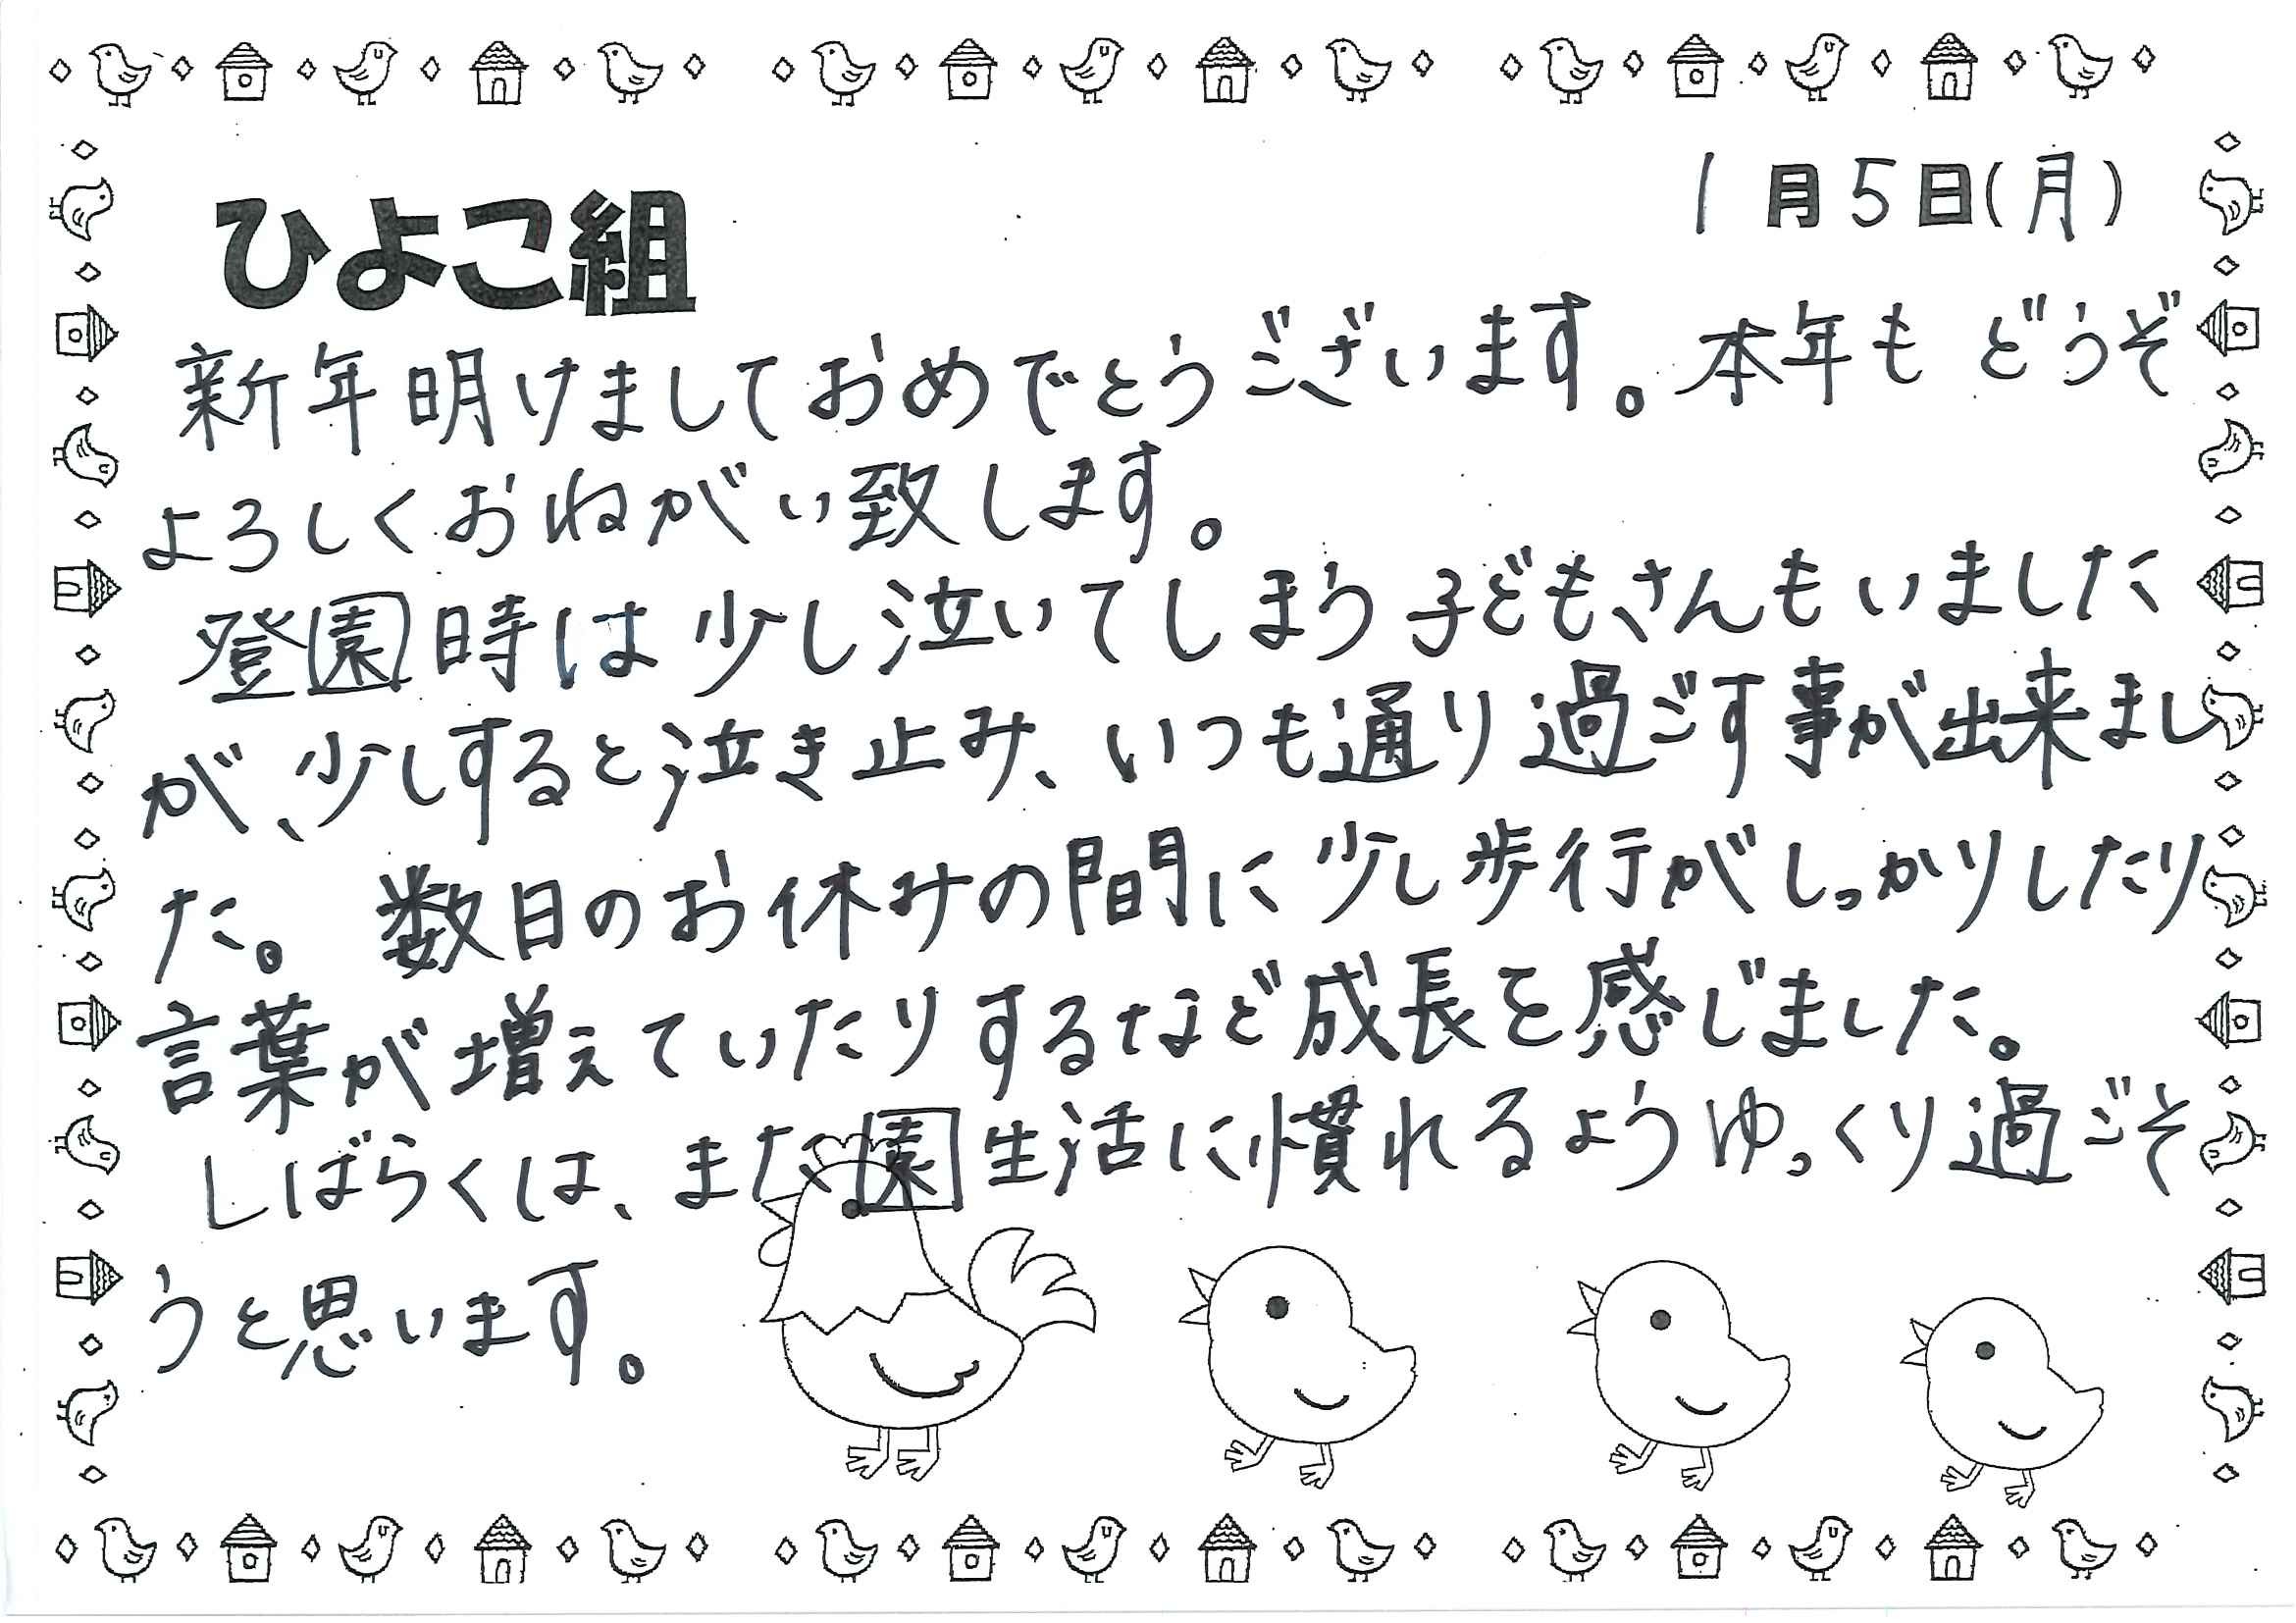 1月5日(月)
ひよこ組
新年明けましておめでとうございます。本年もどうぞ
よろしくおねがい致します。
登園時は少し泣いてしまう子どもさんもいました
が、少しすると泣き止み、いつも通り過ごす事が出来まし
た。数日のお休みの間に少し歩行がしっかりしたり
言葉が増えていたりするなど成長を感じました。
しばらくは、また園生活に慣れるようゆっくり過ごそ
うと思います。